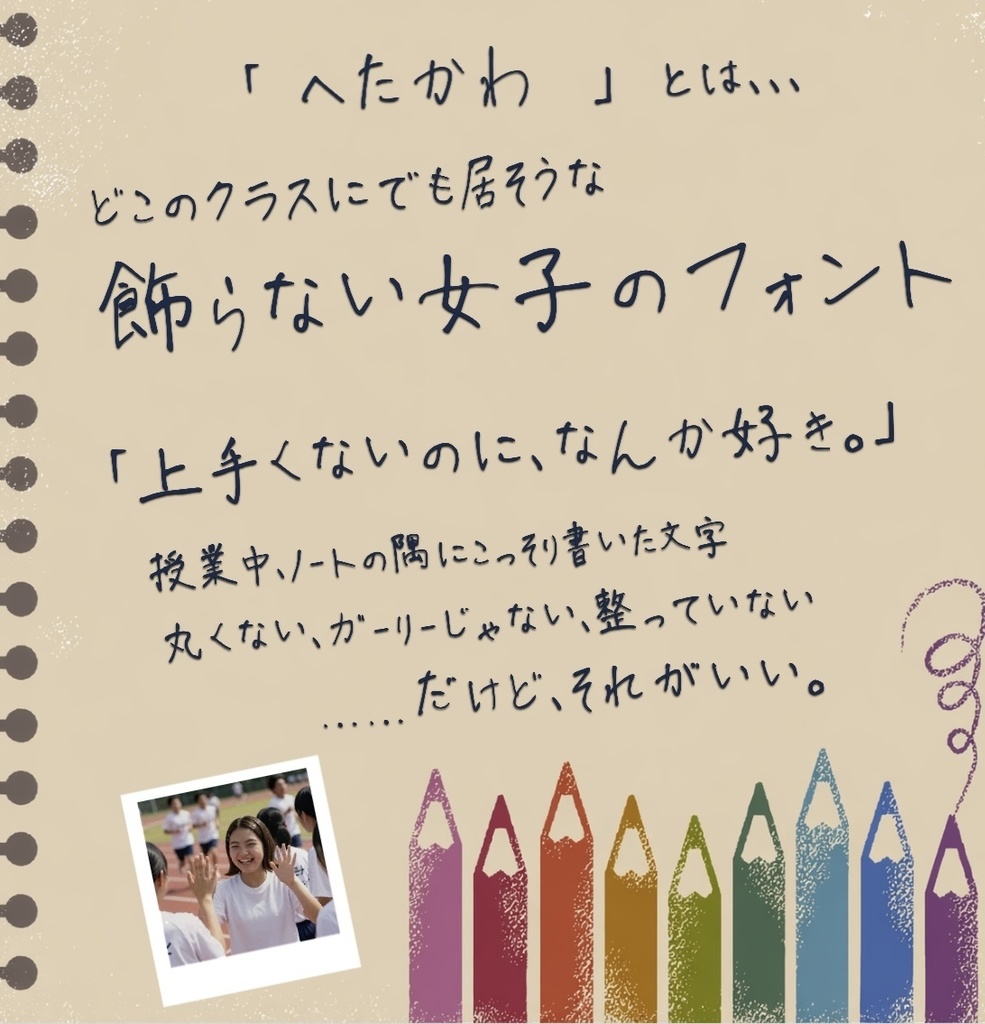 「 へたかわ 」とは、、、
どこのクラスにでも居そうな
飾らない女子のフォント
「上手くないのに、なんか好き。」
授業中、ノートの隅にこっそり書いた文字
丸くない、ガーリーじゃない、整っていない
……だけど、それがいい。